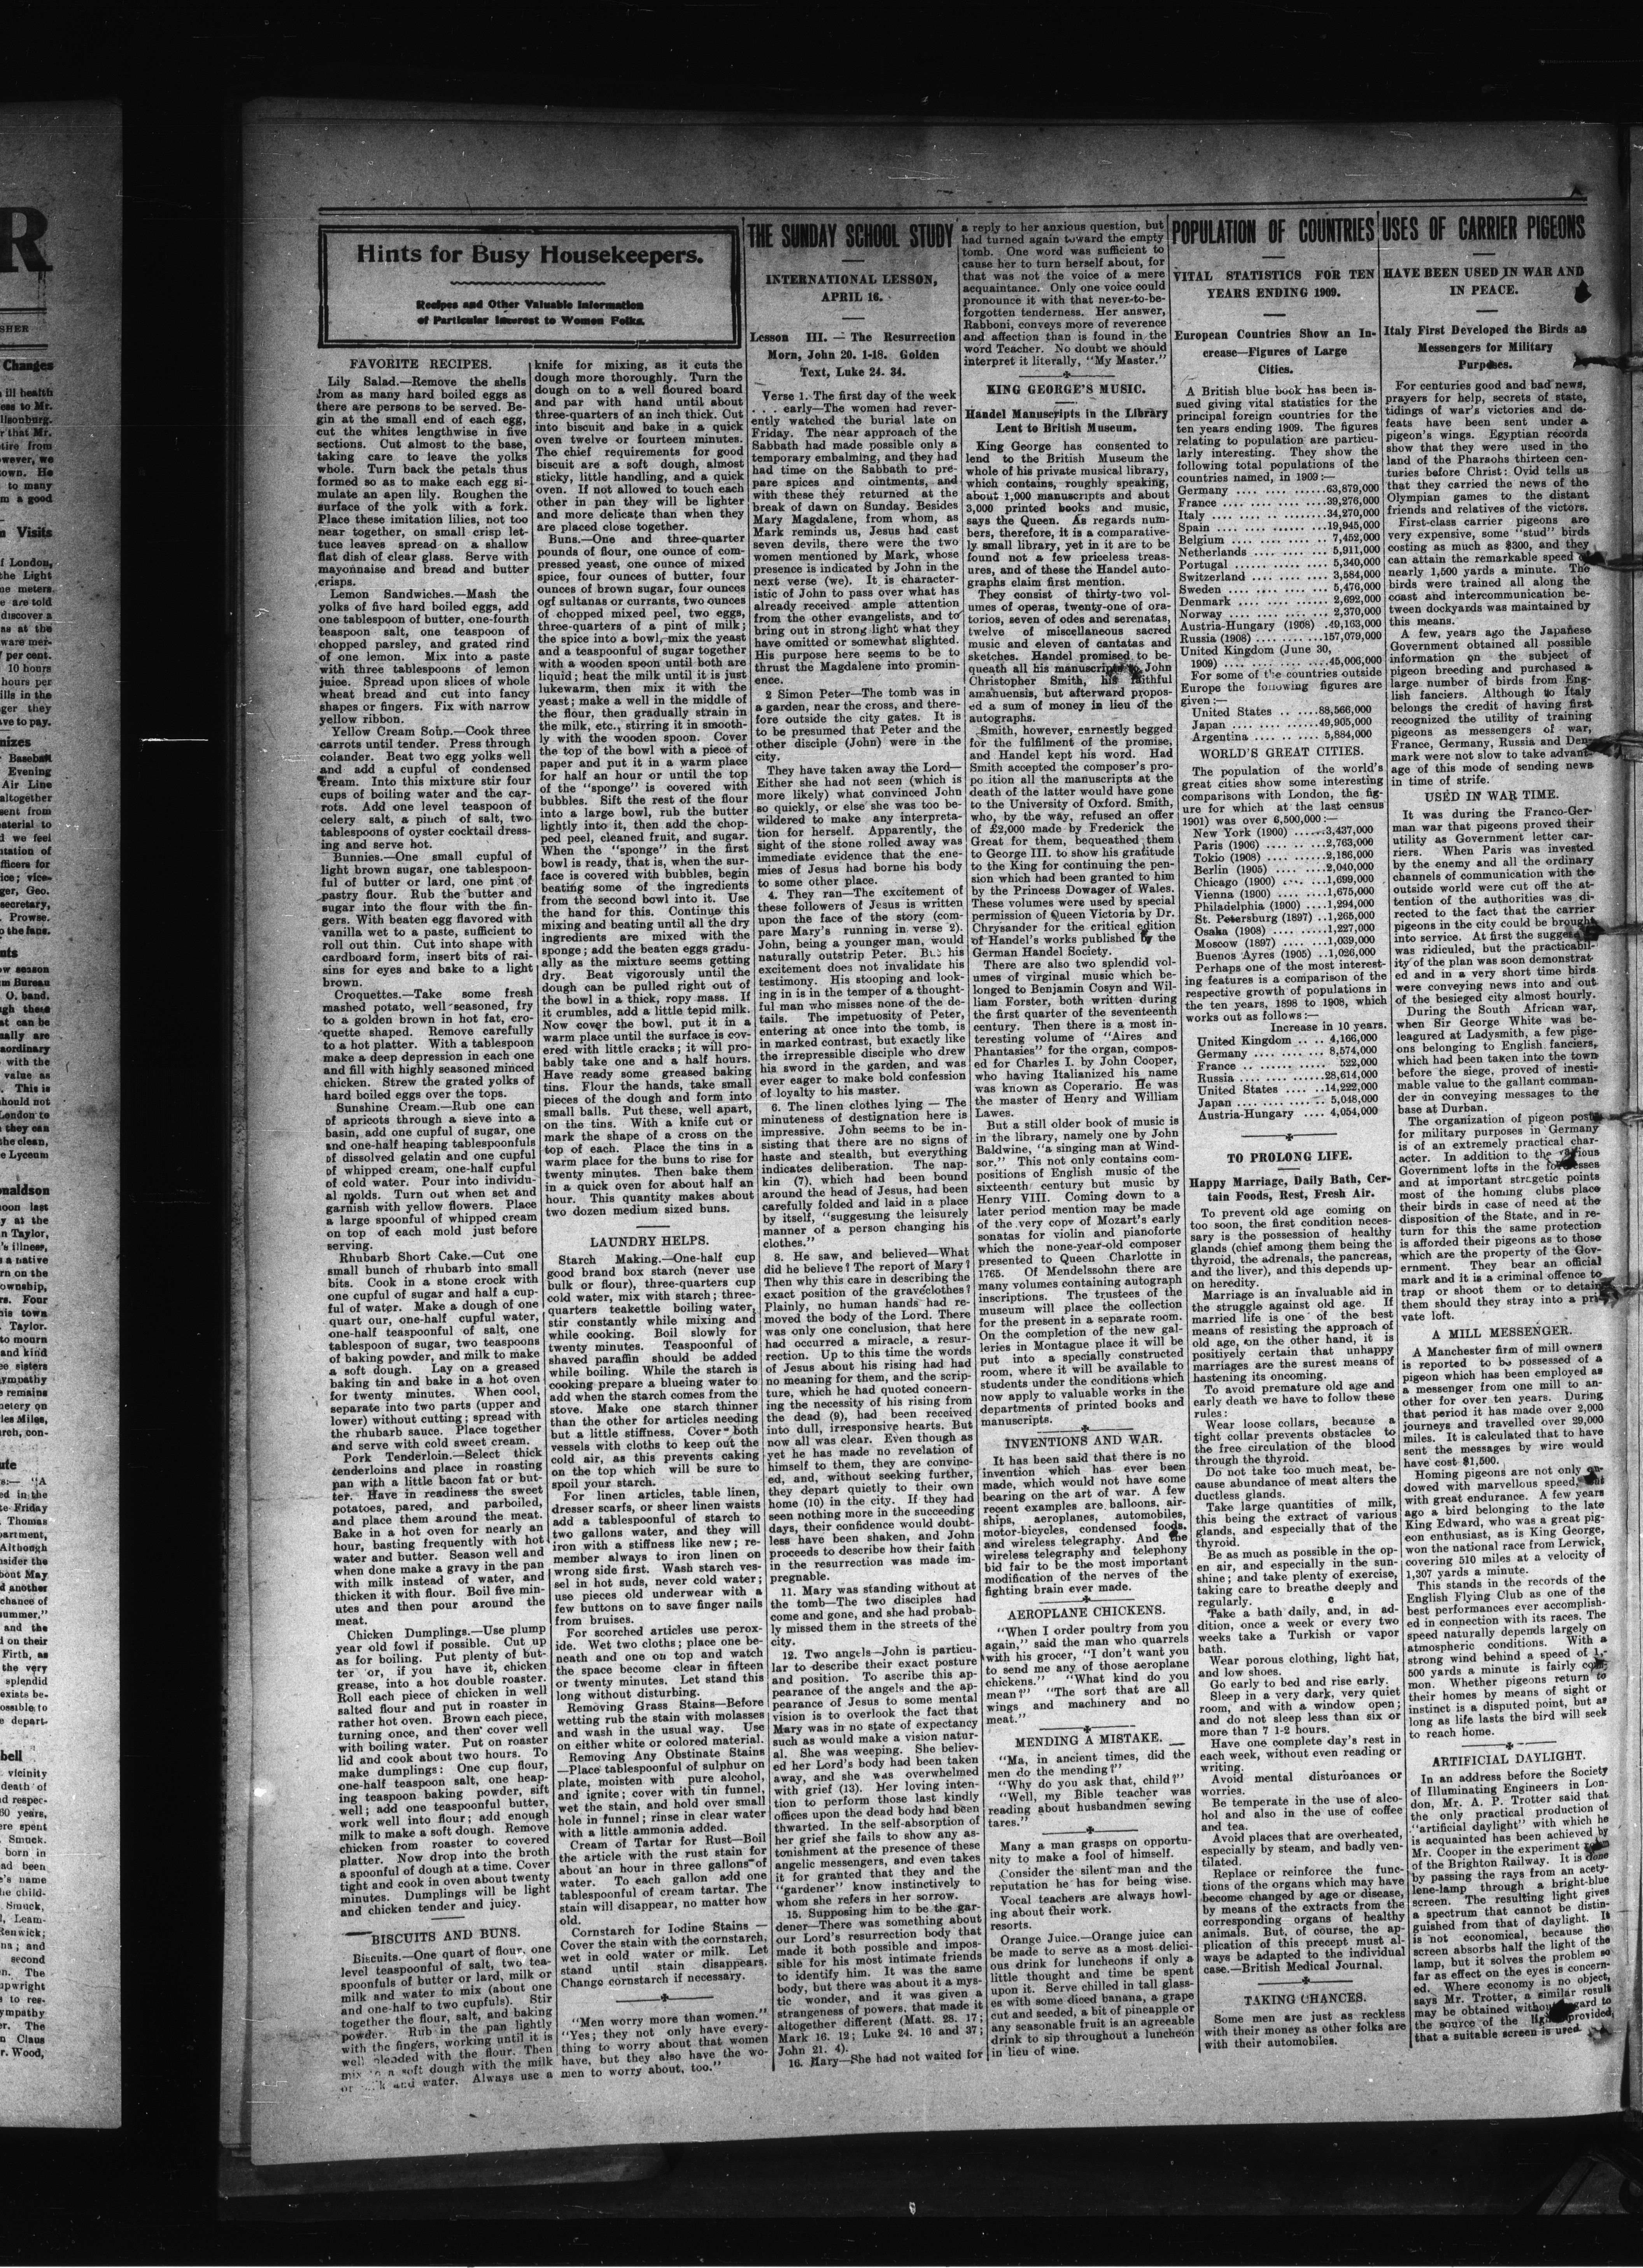 R
SHER
Changes
ill health
ess to Mr.
llsonburg.
r that Mr.
tire from
owever, we
town. He
to many
m a good
Visits
f London,
the Light
ne meters.
e are told
discover a
as at the
ware mer-
per cent.
10 hours
hours per
ills in the
ger they
ave to pay.
nizes
Baseball
Evening
Air Line
altogether
sent from
aterial to
d we feel
ntation of
fficers for
ice; vice-
ger, Geo.
secretary,
Prowse.
o the fans.
Hints for Busy Housekeepers.
Recipes and Other Valuable Information
of Particular Interest to Women Folks.
FAVORITE RECIPES.
Lily Salad.—Remove the shells
from as many hard boiled eggs as
there are persons to be served. Be-
gin at the small end of each egg,
cut the whites lengthwise in five
sections. Cut almost to the base,
taking care to leave the yolks
whole. Turn back the petals thus
formed so as to make each egg si-
mulate an apen lily. Roughen the
surface of the yolk with a fork.
Place these imitation lilies, not too
near together, on small crisp let-
tuce leaves spread on a shallow
flat dish of clear glass. Serve with
mayonnaise and bread and butter
crisps.
Lemon Sandwiches.—Mash the
yolks of five hard boiled eggs, add
one tablespoon of butter, one-fourth
teaspoon salt, one teaspoon of
chopped parsley, and grated rind
of one lemon. Mix into a paste
with three tablespoons of lemon
juice. Spread upon slices of whole
wheat bread and cut into fancy
shapes or fingers. Fix with narrow
yellow ribbon.
Yellow Cream Soup.—Cook three
carrots until tender. Press through
colander. Beat two egg yolks well
and add a cupful of condensed
cream. Into this mixture stir four
cups of boiling water and the car-
rots. Add one level teaspoon of
celery salt, a pinch of salt, two
tablespoons of oyster cocktail dress-
ing and serve hot.
Bunnies.—One small cupful of
light brown sugar, one tablespoon-
ful of butter or lard, one pint of
pastry flour. Rub the butter and
sugar into the flour with the fin-
gers. With beaten egg flavored with
vanilla wet to a paste, sufficient to
roll out thin. Cut into shape with
cardboard form, insert bits of rai-
sins for eyes and bake to a light
brown.
Croquettes.—Take some fresh
mashed potato, well seasoned, fry
to a golden brown in hot fat, cro-
quette shaped. Remove carefully
to a hot platter. With a tablespoon
make a deep depression in each one
and fill with highly seasoned minced
chicken. Strew the grated yolks of
hard boiled eggs over the tops.
Sunshine Cream.—Rub one can
of apricots through a sieve into a
basin, add one cupful of sugar, one
and one-half heaping tablespoonfuls
of dissolved gelatin and one cupful
of whipped cream, one-half cupful
of cold water. Pour into individu-
al molds. Turn out when set and
garnish with yellow flowers. Place
a large spoonful of whipped cream
on top of each mold just before
serving.
Rhubarb Short Cake.—Cut one
small bunch of rhubarb into small
bits. Cook in a stone crock with
one cupful of sugar and half a cup-
ful of water. Make a dough of one
quart our, one-half cupful water,
one-half teaspoonful of salt, one
tablespoon of sugar, two teaspoons
of baking powder, and milk to make
a soft dough. Lay on a greased
baking tin and bake in a hot oven
for twenty minutes. When cool,
separate into two parts (upper and
lower) without cutting; spread with
the rhubarb sauce. Place together
and serve with cold sweet cream.
Pork Tenderloin.—Select thick
tenderloins and place in roasting
pan with a little bacon fat or but-
ter. Have in readiness the sweet
potatoes, pared, and parboiled,
and place them around the meat.
Bake in a hot oven for nearly an
hour, basting frequently with hot
water and butter. Season well and
when done make a gravy in the pan
with milk instead of water, and
thicken it with flour. Boil five min-
utes and then pour around the
meat.
Chicken Dumplings.—Use plump
year old fowl if possible. Cut up
as for boiling. Put plenty of but-
ter or, if you have it, chicken
grease, into a hot double roaster.
Roll each piece of chicken in well
salted flour and put in roaster in
rather hot oven. Brown each piece,
turning once, and then cover well
with boiling water. Put on roaster
lid and cook about two hours. To
make dumplings: One cup flour,
one-half teaspoon salt, one heap-
ing teaspoon baking powder, sift
well; add one teaspoonful butter,
work well into flour; add enough
milk to make a soft dough. Remove
chicken from roaster to covered
platter. Now drop into the broth
a spoonful of dough at a time. Cover
tight and cook in oven about twenty
minutes. Dumplings will be light
and chicken tender and juicy.
BISCUITS AND BUNS.
Biscuits.—One quart of flour, one
level teaspoonful of salt, two tea-
spoonfuls of butter or lard, milk or
milk and water to mix (about one
and one-half to two cupfuls). Stir
together the flour, salt, and baking
powder. Rub in the pan lightly
with the fingers, working until it is
well bleaded with the flour. Then
mix a soft dough with the milk
or milk and water. Always use a
knife for mixing, as it cuts the
dough more thoroughly. Turn the
dough on to a well floured board
and par with hand until about
three-quarters of an inch thick. Cut
into biscuit and bake in a quick
oven twelve or fourteen minutes.
The chief requirements for good
biscuit are a soft dough, almost
sticky, little handling, and a quick
oven. If not allowed to touch each
other in pan they will be lighter
and more delicate than when they
are placed close together.
Buns.—One and three-quarter
pounds of flour, one ounce of com-
pressed yeast, one ounce of mixed
spice, four ounces of butter, four
ounces of brown sugar, four ounces
ogf sultanas or currants, two ounces
of chopped mixed peel, two eggs,
three-quarters of a pint of milk;
the spice into a bowl, mix the yeast
and a teaspoonful of sugar together
with a wooden spoon until both are
liquid; heat the milk until it is just
lukewarm, then mix it with the
yeast; make a well in the middle of
the flour, then gradually strain in
the milk, etc., stirring it in smooth-
ly with the wooden spoon. Cover
the top of the bowl with a piece of
paper and put it in a warm place
for half an hour or until the top
of the "sponge" is covered with
bubbles. Sift the rest of the flour
into a large bowl, rub the butter
lightly into it, then add the chop-
ped peel, cleaned fruit, and sugar.
When the "sponge" in the first
bowl is ready, that is, when the sur-
face is covered with bubbles, begin
beating some of the ingredients
from the second bowl into it. Use
the hand for this. Continue this
mixing and beating until all the dry
ingredients are mixed with the
sponge; add the beaten eggs gradu-
ally as the mixture seems getting
dry. Beat vigorously until the
dough can be pulled right out of
the bowl in a thick, ropy mass. If
it crumbles, add a little tepid milk.
Now cover the bowl, put it in a
warm place until the surface is cov-
ered with little cracks; it will pro-
bably take one and a half hours.
Have ready some greased baking
tins. Flour the hands, take small
pieces of the dough and form into
small balls. Put these, well apart,
on the tins. With a knife cut or
mark the shape of a cross on the
top of each. Place the tins in a
warm place for the buns to rise for
twenty minutes. Then bake them
in a quick oven for about half an
hour. This quantity makes about
two dozen medium sized buns.
LAUNDRY HELPS.
Starch Making.—One-half cup
good brand box starch (never use
bulk or flour), three-quarters cup
cold water, mix with starch; three-
quarters teakettle boiling water,
stir constantly while mixing and
while cooking. Boil slowly for
twenty minutes. Teaspoonful of
shaved paraffin should be added
while boiling. While the starch is
cooking prepare a blueing water to
add when the starch comes from the
stove. Make one starch thinner
than the other for articles needing
but a little stiffness. Cover both
vessels with cloths to keep out the
cold air, as this prevents caking
on the top which will be sure to
spoil your starch.
For linen articles, table linen,
dresser scarfs, or sheer linen waists
add a tablespoonful of starch to
two gallons water, and they will
iron with a stiffness like new; re-
member always to iron linen on
wrong side first. Wash starch ves-
sel in hot suds, never cold water;
use pieces old underwear with a
few buttons on to save finger nails
from bruises.
For scorched articles use perox-
ide. Wet two cloths; place one be-
neath and one on top and watch
the space become clear in fifteen
or twenty minutes. Let stand this
long without disturbing.
Removing Grass Stains—Before
wetting rub the stain with molasses
and wash in the usual way. Use
on either white or colored material.
Removing Any Obstinate Stains
—Place tablespoonful of sulphur on
plate, moisten with pure alcohol,
and ignite; cover with tin funnel,
wet the stain, and hold over small
hole in funnel; rinse in clear water
with a little ammonia added.
Cream of Tartar for Rust—Boil
the article with the rust stain for
about an hour in three gallons of
water. To each gallon add one
tablespoonful of cream tartar. The
stain will disappear, no matter how
old.
Cornstarch for Iodine Stains —
Cover the stain with the cornstarch,
wet in cold water or milk. Let
stand until stain disappears.
Change cornstarch if necessary.
"Men worry more than women."
"Yes; they not only have every-
thing to worry about that women
have, but they also have the wo-
men to worry about, too."
THE SUNDAY SCHOOL STUDY
INTERNATIONAL LESSON,
APRIL 16.
Lesson III. — The Resurrection
Morn, John 20. 1-18. Golden
Text, Luke 24. 34.
Verse 1. The first day of the week
. . . early—The women had rever-
ently watched the burial late on
Friday. The near approach of the
Sabbath had made possible only a
temporary embalming, and they had
had time on the Sabbath to pre-
pare spices and ointments, and
with these they returned at the
break of dawn on Sunday. Besides
Mary Magdalene, from whom, as
Mark reminds us, Jesus had cast
seven devils, there were the two
women mentioned by Mark, whose
presence is indicated by John in the
next verse (we). It is character-
istic of John to pass over what has
already received ample attention
from the other evangelists, and to
bring out in strong light what they
have omitted or somewhat slighted.
His purpose here seems to be to
thrust the Magdalene into promin-
ence.
2 Simon Peter—The tomb was in
a garden, near the cross, and there-
fore outside the city gates. It is
to be presumed that Peter and the
other disciple (John) were in the
city.
They have taken away the Lord—
Either she had not seen (which is
more likely) what convinced John
so quickly, or else she was too be-
wildered to make any interpreta-
tion for herself. Apparently, the
sight of the stone rolled away was
immediate evidence that the ene-
mies of Jesus had borne his body
to some other place.
4. They ran—The excitement of
these followers of Jesus is written
upon the face of the story (com-
pare Mary's running in verse 2).
John, being a younger man, would
naturally outstrip Peter. But his
excitement does not invalidate his
testimony. His stooping and look-
ing in is in the temper of a thought-
ful man who misses none of the de-
tails. The impetuosity of Peter,
entering at once into the tomb, is
in marked contrast, but exactly like
the irrepressible disciple who drew
his sword in the garden, and was
ever eager to make bold confession
of loyalty to his master.
6. The linen clothes lying — The
minuteness of destignation here is
impressive. John seems to be in-
sisting that there are no signs of
haste and stealth, but everything
indicates deliberation. The nap-
kin (7), which had been bound
around the head of Jesus, had been
carefully folded and laid in a place
by itself, "suggesting the leisurely
manner of a person changing his
clothes."
8. He saw, and believed—What
did he believe? The report of Mary?
Then why this care in describing the
exact position of the graveclothes?
Plainly, no human hands had re-
moved the body of the Lord. There
was only one conclusion, that here
had occurred a miracle, a resur-
rection. Up to this time the words
of Jesus about his rising had had
no meaning for them, and the scrip-
ture, which he had quoted concern-
ing the necessity of his rising from
the dead (9), had been received
into dull, irresponsive hearts. But
now all was clear. Even though as
yet he has made no revelation of
himself to them, they are convinc-
ed, and, without seeking further,
they depart quietly to their own
home (10) in the city. If they had
seen nothing more in the succeeding
days, their confidence would doubt-
less have been shaken, and John
proceeds to describe how their faith
in the resurrection was made im-
pregnable.
11. Mary was standing without at
the tomb—The two disciples had
come and gone, and she had probab-
ly missed them in the streets of the
city.
12. Two angels—John is particu-
lar to describe their exact posture
and position. To ascribe this ap-
pearance of the angels and the ap-
pearance of Jesus to some mental
vision is to overlook the fact that
Mary was in no state of expectancy
such as would make a vision natur-
al. She was weeping. She believ-
ed her Lord's body had been taken
away, and she was overwhelmed
with grief (13). Her loving inten-
tion to perform those last kindly
offices upon the dead body had been
thwarted. In the self-absorption of
her grief she fails to show any as-
tonishment at the presence of these
angelic messengers, and even takes
it for granted that they and the
"gardener" know instinctively to
whom she refers in her sorrow.
15. Supposing him to be the gar-
dener—There was something about
our Lord's resurrection body that
made it both possible and impos-
sible for his most intimate friends
to identify him. It was the same
body, but there was about it a mys-
tic wonder, and it was given a
strangeness of powers, that made it
altogether different (Matt. 28. 17;
Mark 16. 12; Luke 24. 16 and 37;
John 21. 4).
16. Mary—She had not waited for
a reply to her anxious question, but
had turned again toward the empty
tomb. One word was sufficient to
cause her to turn herself about, for
that was not the voice of a mere
acquaintance. Only one voice could
pronounce it with that never-to-be-
forgotten tenderness. Her answer,
Rabboni, conveys more of reverence
and affection than is found in the
word Teacher. No doubt we should
interpret it literally, "My Master."
KING GEORGE'S MUSIC.
Handel Manuscripts in the Library
Lent to British Museum.
King George has consented to
lend to the British Museum the
whole of his private musical library,
which contains, roughly speaking,
about 1,000 manuscripts and about
3,000 printed books and music,
says the Queen. As regards num-
bers, therefore, it is a comparative-
ly small library, yet in it are to be
found not a few priceless treas-
ures, and of these the Handel auto-
graphs claim first mention.
They consist of thirty-two vol-
umes of operas, twenty-one of ora-
torios, seven of odes and serenatas,
twelve of miscellaneous sacred
music and eleven of cantatas and
sketches. Handel promised to be-
queath all his manuscripts to John
Christopher Smith, his faithful
amanuensis, but afterward propos-
ed a sum of money in lieu of the
autographs.
Smith, however, earnestly begged
for the fulfilment of the promise,
and Handel kept his word. Had
Smith accepted the composer's pro-
po ition all the manuscripts at the
death of the latter would have gone
to the University of Oxford. Smith,
who, by the way, refused an offer
of £2,000 made by Frederick the
Great for them, bequeathed them
to George III. to show his gratitude
to the King for continuing the pen-
sion which had been granted to him
by the Princess Dowager of Wales.
These volumes were used by special
permission of Queen Victoria by Dr.
Chrysander for the critical edition
of Handel's works published by the
German Handel Society.
There are also two splendid vol-
umes of virginal music which be-
longed to Benjamin Cosyn and Wil-
liam Forster, both written during
the first quarter of the seventeenth
century. Then there is a most in-
teresting volume of "Aires and
Phantasies" for the organ, compos-
ed for Charles I. by John Cooper,
who having Italianized his name
was known as Coperario. He was
the master of Henry and William
Lawes.
But a still older book of music is
in the library, namely one by John
Baldwine, "a singing man at Wind-
sor." This not only contains com-
positions of English music of the
sixteenth century but music by
Henry VIII. Coming down to a
later period mention may be made
of the very copy of Mozart's early
sonatas for violin and pianoforte
which the none-year-old composer
presented to Queen Charlotte in
1765. Of Mendelssohn there are
many volumes containing autograph
inscriptions. The trustees of the
museum will place the collection
for the present in a separate room.
On the completion of the new gal-
leries in Montague place it will be
put into a specially constructed
room, where it will be available to
students under the conditions which
now apply to valuable works in the
departments of printed books and
manuscripts.
INVENTIONS AND WAR.
It has been said that there is no
invention which has ever been
made, which would not have some
bearing on the art of war. A few
recent examples are balloons, air-
ships, aeroplanes, automobiles,
motor-bicycles, condensed foods,
and wireless telegraphy. And the
wireless telegraphy and telephony
bid fair to be the most important
modification of the nerves of the
fighting brain ever made.
AEROPLANE CHICKENS.
"When I order poultry from you
again," said the man who quarrels
with his grocer, "I don't want you
to send me any of those aeroplane
chickens." "What kind do you
mean?" "The sort that are all
wings and machinery and no
meat."
MENDING A MISTAKE.
"Ma, in ancient times, did the
men do the mending?"
"Why do you ask that, child?"
"Well, my Bible teacher was
reading about husbandmen sewing
tares."
Many a man grasps on opportu-
nity to make a fool of himself.
Consider the silent man and the
reputation he has for being wise.
Vocal teachers are always howl-
ing about their work.
resorts.
Orange Juice.—Orange juice can
be made to serve as a most delici-
ous drink for luncheons if only a
little thought and time be spent
upon it. Serve chilled in tall glass-
es with some diced banana, a grape
cut and seeded, a bit of pineapple or
any seasonable fruit is an agreeable
drink to sip throughout a luncheon
in lieu of wine.
POPULATION OF COUNTRIES
VITAL STATISTICS FOR TEN
YEARS ENDING 1909.
European Countries Show an In-
crease—Figures of Large
Cities.
A British blue book has been is-
sued giving vital statistics for the
principal foreign countries for the
ten years ending 1909. The figures
relating to population are particu-
larly interesting. They show the
following total populations of the
countries named, in 1909:—
Germany .... ....... 63,879,000
France .... ....... 39,276,000
Italy .... ....... 34,270,000
Spain .... ....... 19,945,000
Belgium .... ....... 7,452,000
Netherlands .... ....... 5,911,000
Portugal .... ....... 5,340,000
Switzerland .... ....... 3,584,000
Sweden .... ....... 5,476,000
Denmark .... ....... 2,692,000
Norway .... ....... 2,370,000
Austria-Hungary (1908) .49,163,000
Russia (1908) .... .....157,079,000
United Kingdom (June 30,
1909) .... ....... 45,006,000
For some of the countries outside
Europe the following figures are
given:—
United States .. ....88,566,000
Japan .... ....... 49,905,000
Argentina .... ..... 5,884,000
WORLD'S GREAT CITIES.
The population of the world's
great cities show some interesting
comparisons with London, the fig-
ure for which at the last census
1901) was over 6,500,000:—
New York (1900) ......3,437,000
Paris (1906) .... ....2,763,000
Tokio (1908) .... ....2,186,000
Berlin (1905) .... ....2,040,000
Chicago (1900) .... ..1,699,000
Vienna (1900) .... ....1,675,000
Philadelphia (1900) ....1,294,000
St. Petersburg (1897) ..1,265,000
Osaka (1908) .... ....1,227,000
Moscow (1897) .... ...1,039,000
Buenos Ayres (1905) ..1,026,000
Perhaps one of the most interest-
ing features is a comparison of the
respective growth of populations in
the ten years, 1898 to 1908, which
works out as follows:—
Increase in 10 years.
United Kingdom .. .. 4,166,000
Germany .... ....... 8,574,000
France .. ........ 522,000
Russia .... .......28,614,000
United States .... ..14,222,000
Japan .... ....... 5,048,000
Austria-Hungary .... 4,054,000
TO PROLONG LIFE.
Happy Marriage, Daily Bath, Cer-
tain Foods, Rest, Fresh Air.
To prevent old age coming on
too soon, the first condition neces-
sary is the possession of healthy
glands (chief among them being the
thyroid, the adrenals, the pancreas,
and the liver), and this depends up-
on heredity.
Marriage is an invaluable aid in
the struggle against old age. If
married life is one of the best
means of resisting the approach of
old age, on the other hand, it is
positively certain that unhappy
marriages are the surest means of
hastening its oncoming.
To avoid premature old age and
early death we have to follow these
rules:
Wear loose collars, because a
tight collar prevents obstacles to
the free circulation of the blood
through the thyroid.
Do not take too much meat, be-
cause abundance of meat alters the
ductless glands.
Take large quantities of milk,
this being the extract of various
glands, and especially that of the
thyroid.
Be as much as possible in the op-
en air, and especially in the sun-
shine; and take plenty of exercise,
taking care to breathe deeply and
regularly.
Take a bath daily, and, in ad-
dition, once a week or every two
weeks take a Turkish or vapor
bath.
Wear porous clothing, light hat,
and low shoes.
Go early to bed and rise early.
Sleep in a very dark, very quiet
room, and with a window open;
and do not sleep less than six or
more than 7 1-2 hours.
Have one complete day's rest in
each week, without even reading or
writing.
Avoid mental disturbances or
worries.
Be temperate in the use of alco-
hol and also in the use of coffee
and tea.
Avoid places that are overheated,
especially by steam, and badly ven-
tilated.
Replace or reinforce the func-
tions of the organs which may have
become changed by age or disease,
by means of the extracts from the
corresponding organs of healthy
animals. But, of course, the ap-
plication of this precept must al-
ways be adapted to the individual
case.—British Medical Journal.
TAKING CHANCES.
Some men are just as reckless
with their money as other folks are
with their automobiles.
USES OF CARRIER PIGEONS
HAVE BEEN USED IN WAR AND
IN PEACE.
Italy First Developed the Birds as
Messengers for Military
Purposes.
For centuries good and bad news,
prayers for help, secrets of state,
tidings of war's victories and de-
feats have been sent under a
pigeon's wings. Egyptian records
show that they were used in the
land of the Pharaohs thirteen cen-
turies before Christ: Ovid tells us
that they carried the news of the
Olympian games to the distant
friends and relatives of the victors.
First-class carrier pigeons are
very expensive, some "stud" birds
costing as much as $300, and they
can attain the remarkable speed of
nearly 1,500 yards a minute. The
birds were trained all along the
coast and intercommunication be-
tween dockyards was maintained by
this means.
A few, years ago the Japanese
Government obtained all possible
information on the subject of
pigeon breeding and purchased a
large number of birds from Eng-
lish fanciers. Although to Italy
belongs the credit of having first
recognized the utility of training
pigeons as messengers of war,
France, Germany, Russia and Den-
mark were not slow to take advant-
age of this mode of sending news
in time of strife.
USED IN WAR TIME.
It was during the Franco-Ger-
man war that pigeons proved their
utility as Government letter car-
riers. When Paris was invested
by the enemy and all the ordinary
channels of communication with the
outside world were cut off the at-
tention of the authorities was di-
rected to the fact that the carrier
pigeons in the city could be brought
into service. At first the
was ridiculed, but the practicabil-
ity of the plan was soon demonstrat-
ed and in a very short time birds
were conveying news into and out
of the besieged city almost hourly.
During the South African war,
when Sir George White was be-
leagured at Ladysmith, a few pige-
ons belonging to English fanciers,
which had been taken into the town
before the siege, proved of inesti-
mable value to the gallant comman-
der in conveying messages to the
base at Durban.
The organization of pigeon posts
for military purposes in Germany
is of an extremely practical char-
acter. In addition to the various
Government lofts in the fortresses
and at important strategic points
most of the homing clubs place
their birds in case of need at the
disposition of the State, and in re-
turn for this the same protection
is afforded their pigeons as to those
which are the property of the Gov-
ernment. They bear an official
mark and it is a criminal offence to
trap or shoot them or to detain
them should they stray into a pri-
vate loft.
A MILL MESSENGER.
A Manchester firm of mill owners
is reported to be possessed of a
pigeon which has been employed as
a messenger from one mill to an-
other for over ten years. During
that period it has made over 2,000
journeys and travelled over 29,000
miles. It is calculated that to have
sent the messages by wire would
have cost $1,500.
Homing pigeons are not only en-
dowed with marvellous speed, but
with great endurance. A few years
ago a bird belonging to the late
King Edward, who was a great pig-
eon enthusiast, as is King George,
won the national race from Lerwick,
covering 510 miles at a velocity of
1,307 yards a minute.
This stands in the records of the
English Flying Club as one of the
best performances ever accomplish-
ed in connection with its races. The
speed naturally depends largely on
atmospheric conditions. With a
strong wind behind a speed of 1,-
500 yards a minute is fairly com-
mon. Whether pigeons return to
their homes by means of sight or
instinct is a disputed point, but as
long as life lasts the bird will seek
to reach home.
ARTIFICIAL DAYLIGHT.
In an address before the Society
of Illuminating Engineers in Lon-
don, Mr. A. P. Trotter said that
the only practical production of
"artificial daylight" with which he
is acquainted has been achieved by
Mr. Cooper in the experiment room
of the Brighton Railway. It is done
by passing the rays from an acety-
lene-lamp through a bright-blue
screen. The resulting light gives
a spectrum that cannot be distin-
guished from that of daylight. It
is not economical, because the
screen absorbs half the light of the
lamp, but it solves the problem so
far as effect on the eyes is concern-
ed. Where economy is no object,
says Mr. Trotter, a similar result
may be obtained without regard to
the source of the light provided,
that a suitable screen is used.